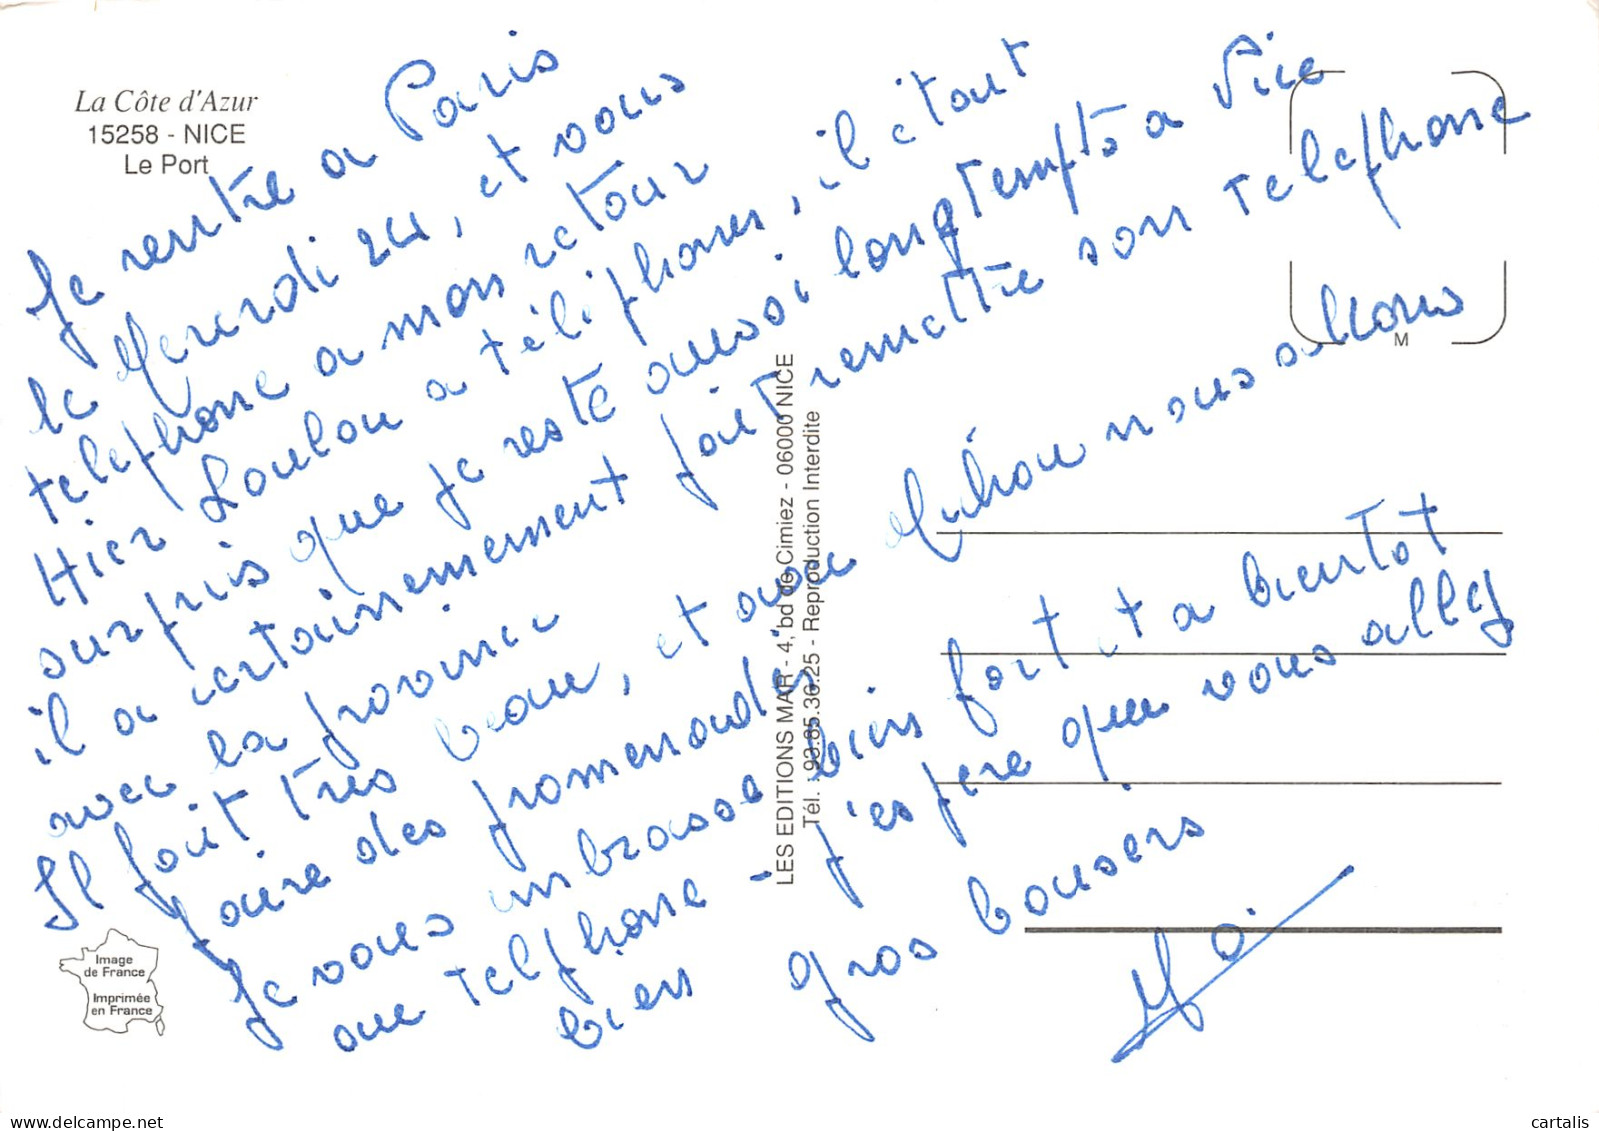 La Côte d'Azur
15258 - NICE
Le Port
Je rentre a Paris
le Mercredi 24, et vous
telephone a mon retour
Hier Loulou a téléphoner, il était
surpris que je reste aussi longtempts a Nice
il a certainement fait remettre son telephone
avec la province
Il fait très beau, et avec Michou nous allons
faire des promenades
Je vous embrasse bien fort et a bientot
au telephone - j'espère que vous allez
bien gros baisers
LES EDITIONS MAR - 4, bd de Cimiez - 06000 NICE
Tél. : 93.85.36.25 - Reproduction Interdite
M
Image
de France
Imprimée
en France
cartalis